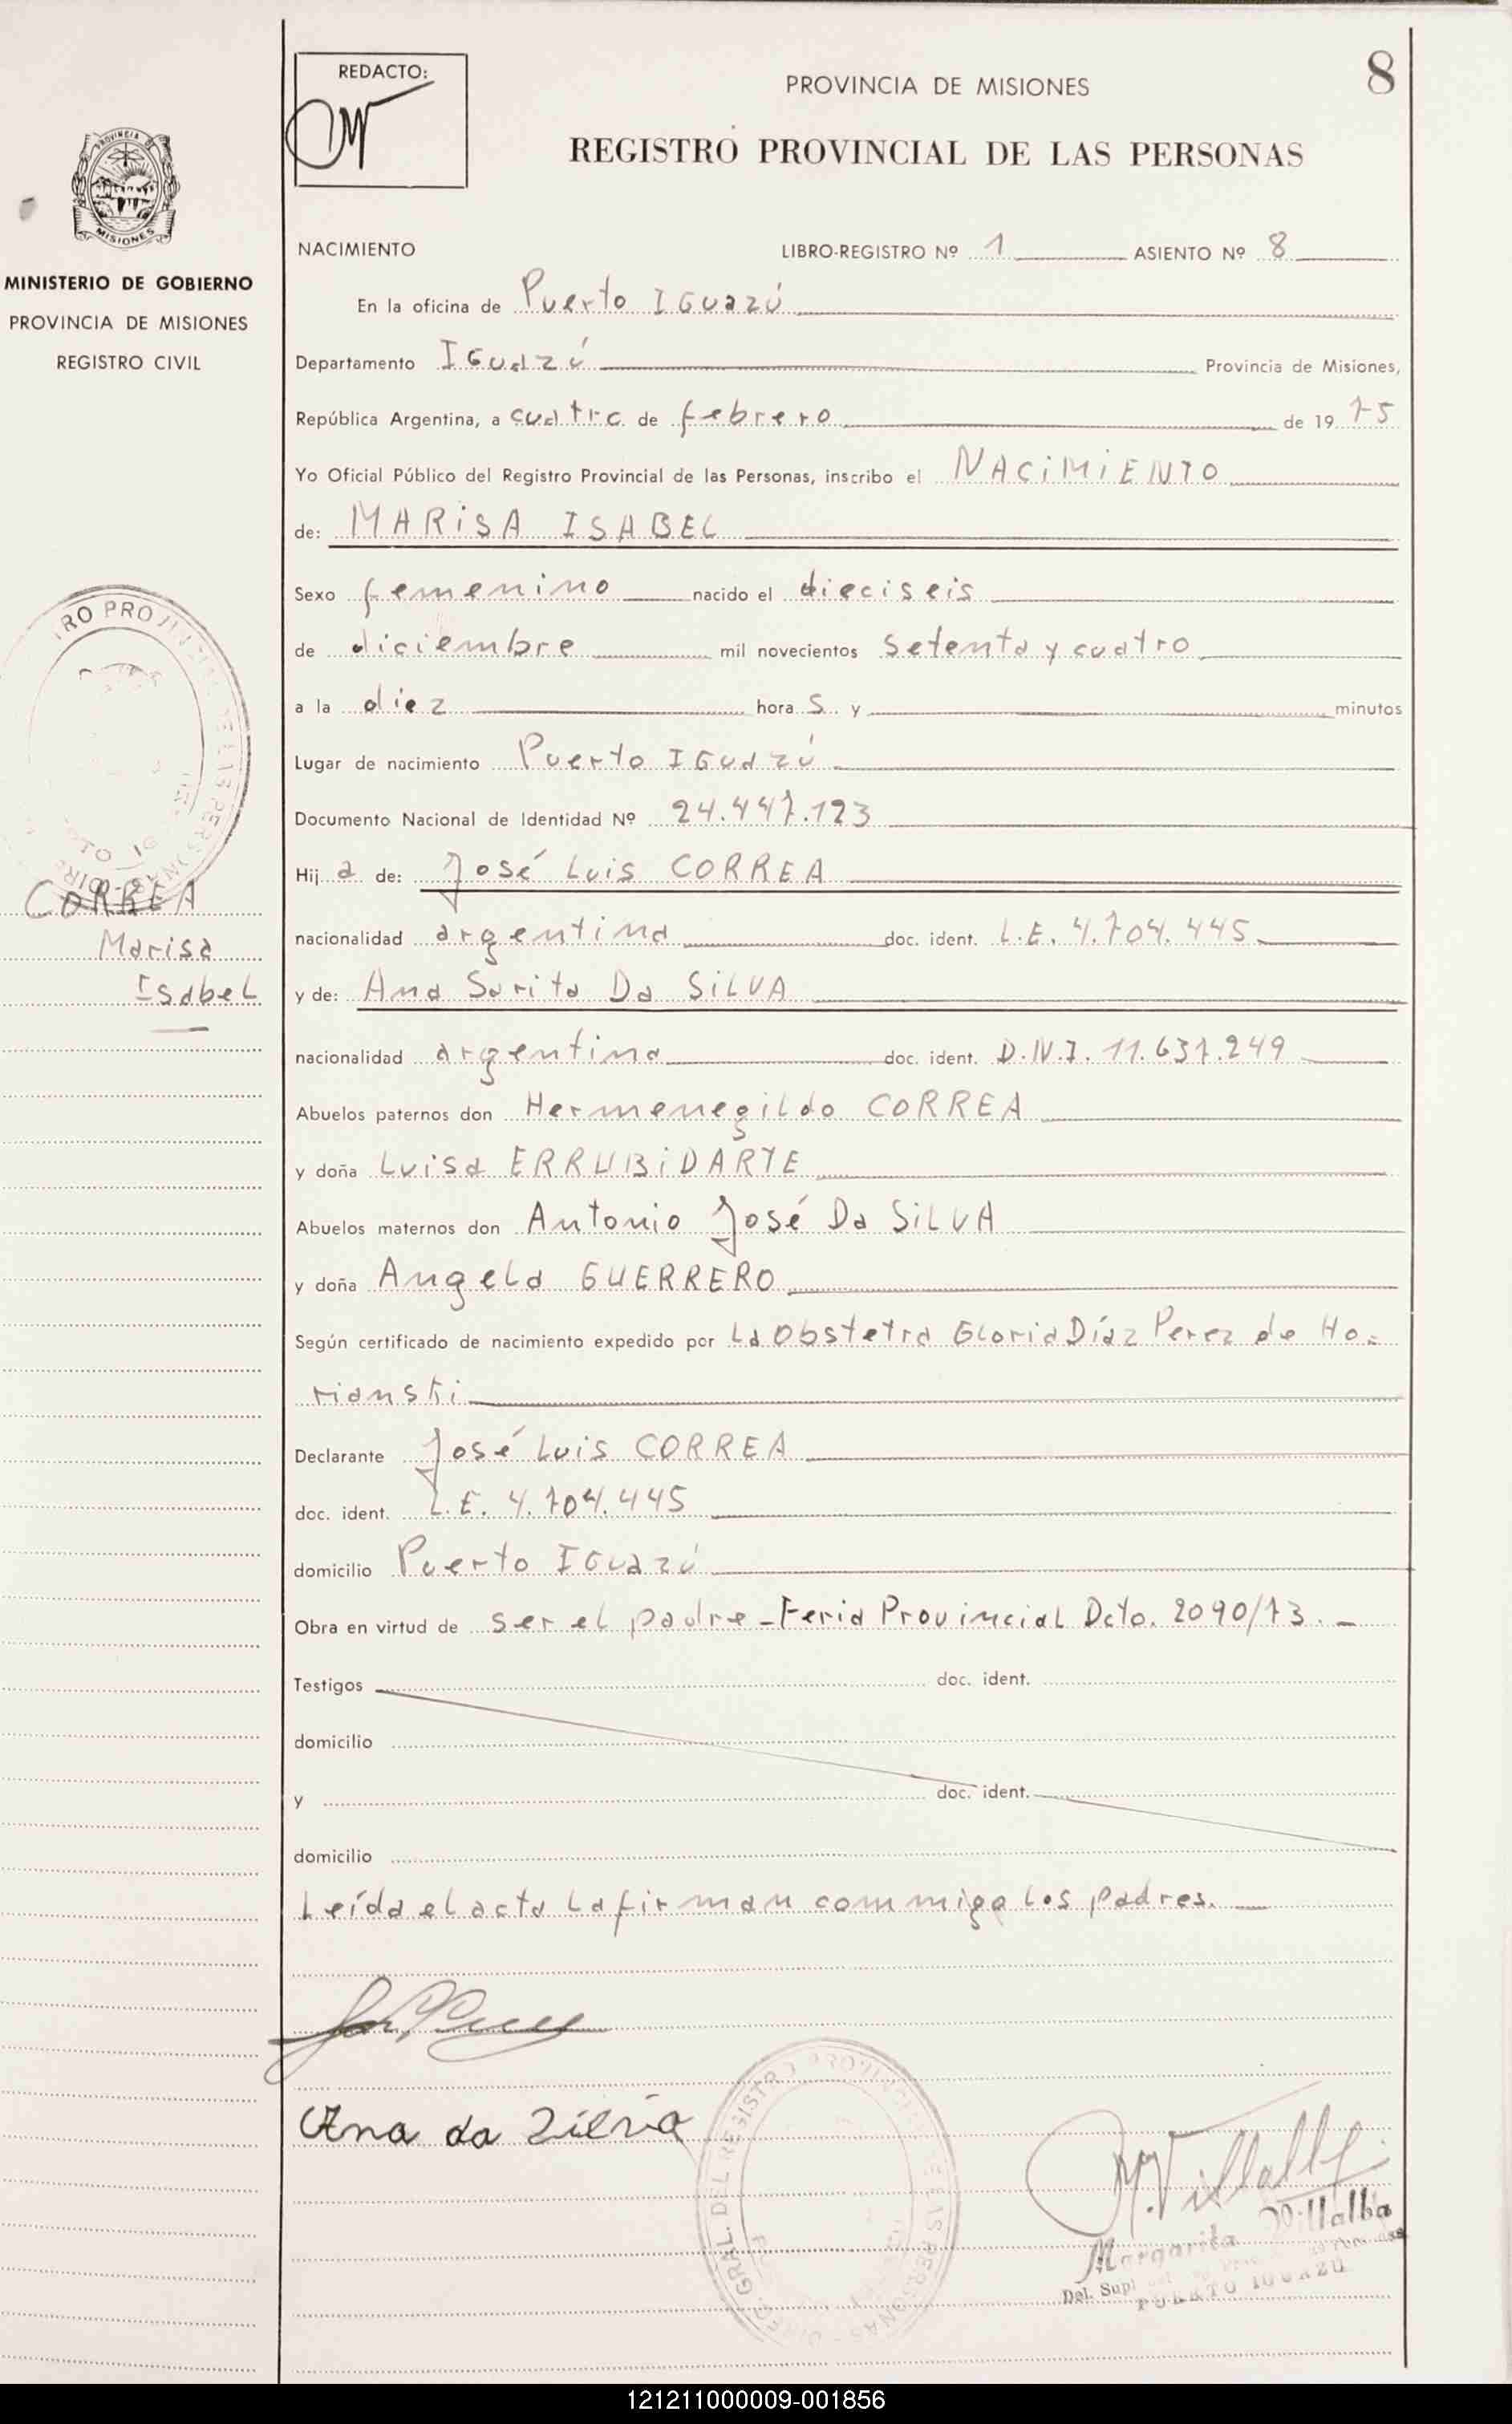 8
REDACTO:
PROVINCIA DE MISIONES
REGISTRO PROVINCIAL DE LAS PERSONAS
PROVINCIA DE
MISIONES
MINISTERIO DE GOBIERNO
PROVINCIA DE MISIONES
REGISTRO CIVIL
NACIMIENTO LIBRO-REGISTRO Nº 1 ASIENTO Nº 8
En la oficina de Puerto IGuazú
Departamento IGuazú Provincia de Misiones,
República Argentina, a cuatro de febrero de 19 75
Yo Oficial Público del Registro Provincial de las Personas, inscribo el NACIMIENTO
de: MARISA ISABEL
Sexo femenino nacido el dieciseis
de diciembre mil novecientos setenta y cuatro
a la diez hora s y minutos
Lugar de nacimiento Puerto IGuazú
Documento Nacional de Identidad Nº 24.447.123
Hij a de: José Luis CORREA
CORREA
Marisa
Isabel
nacionalidad argentina doc. ident. L.E. 4.704.445
y de: Ana Sarita Da SILVA
nacionalidad argentina doc. ident. D.N.I. 11.637.249
Abuelos paternos don Hermenegildo CORREA
y doña Luisa ERRUBIDARTE
Abuelos maternos don Antonio José Da SILVA
y doña Angela GUERRERO
Según certificado de nacimiento expedido por La Obstetra Gloria Díaz Perez de Ho-
rianski
Declarante José Luis CORREA
doc. ident. L.E. 4.704.445
domicilio Puerto IGuazú
Obra en virtud de ser el padre - Feria Provincial Dcto. 2090/73. -
Testigos doc. ident.
domicilio
y doc. ident.
domicilio
Leída el acta la firman conmigo los padres.
Ana da Silva
M. Villalba
Margarita Villalba
Del. Supl
PUERTO IGUAZU
GRAL. DEL REGISTRO PROVINCIAL DE LAS PERSONAS
121211000009-001856